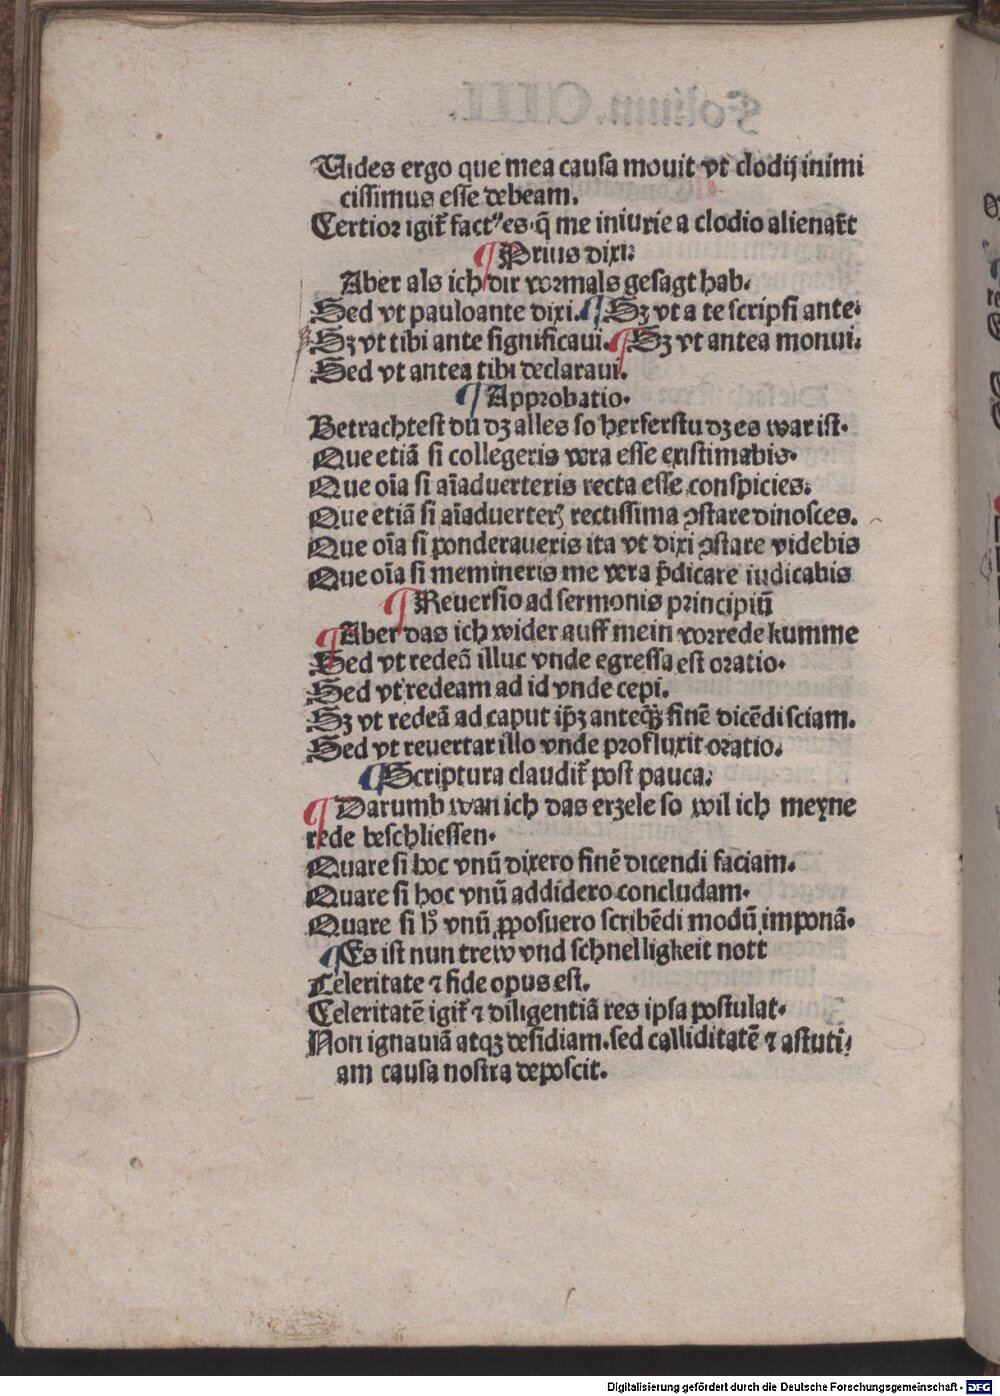 Uides ergo que mea causa mouit vt clodij inimi
cissimus esse debeam.
Certior igit᷑ factꝰ es. q̄ me iniurie a clodio alienar̄t
¶ Prius dixi:
Aber als ich dir vormals gesagt hab.
Sed vt pauloante dixi. ¶ Sꝫ vt a te scripsi ante.
Sꝫ vt tibi ante significaui. ¶ Sꝫ vt antea monui.
Sed vt antea tibi declaraui.
¶ Approbatio.
Betrachtest du dꝫ alles so herferstu dꝫ es war ist.
Que etiā si collegeris vera esse existimabis.
Que oīa si aīaduerteris recta esse conspicies.
Que etiā si aīaduerterꝭ rectissima ꝯstare dinosces.
Que oīa si ponderaueris ita vt dixi ꝯstare videbis
Que oīa si memineris me vera p̄dicare iudicabis
¶ Reuersio ad sermonis principiū
¶ Aber das ich wider auff mein vorrede kumme
Sed vt redeā illuc vnde egressa est oratio.
Sed vt redeam ad id vnde cepi.
Sꝫ vt redeā ad caput ip̄ꝫ anteq̄ꝫ finē dicēdi sciam.
Sed vt reuertar illo vnde profluxit oratio.
¶ Scriptura claudit᷑ post pauca.
¶ Darumb wan ich das erzele so wil ich meyne
rede beschliessen.
Quare si hoc vnū dixero finē dicendi faciam.
Quare si hoc vnū addidero concludam.
Quare si hͦ vnū ꝓposuero scribēdi modū imponā.
¶ Es ist nun trew vnd schnelligkeit nott
Celeritate ⁊ fide opus est.
Celeritatē igit᷑ ⁊ diligentiā res ipsa postulat.
Non ignauiā atqꝫ desidiam. sed calliditatē ⁊ astuti
am causa nostra deposcit.
Digitalisierung gefördert durch die Deutsche Forschungsgemeinschaft - DFG